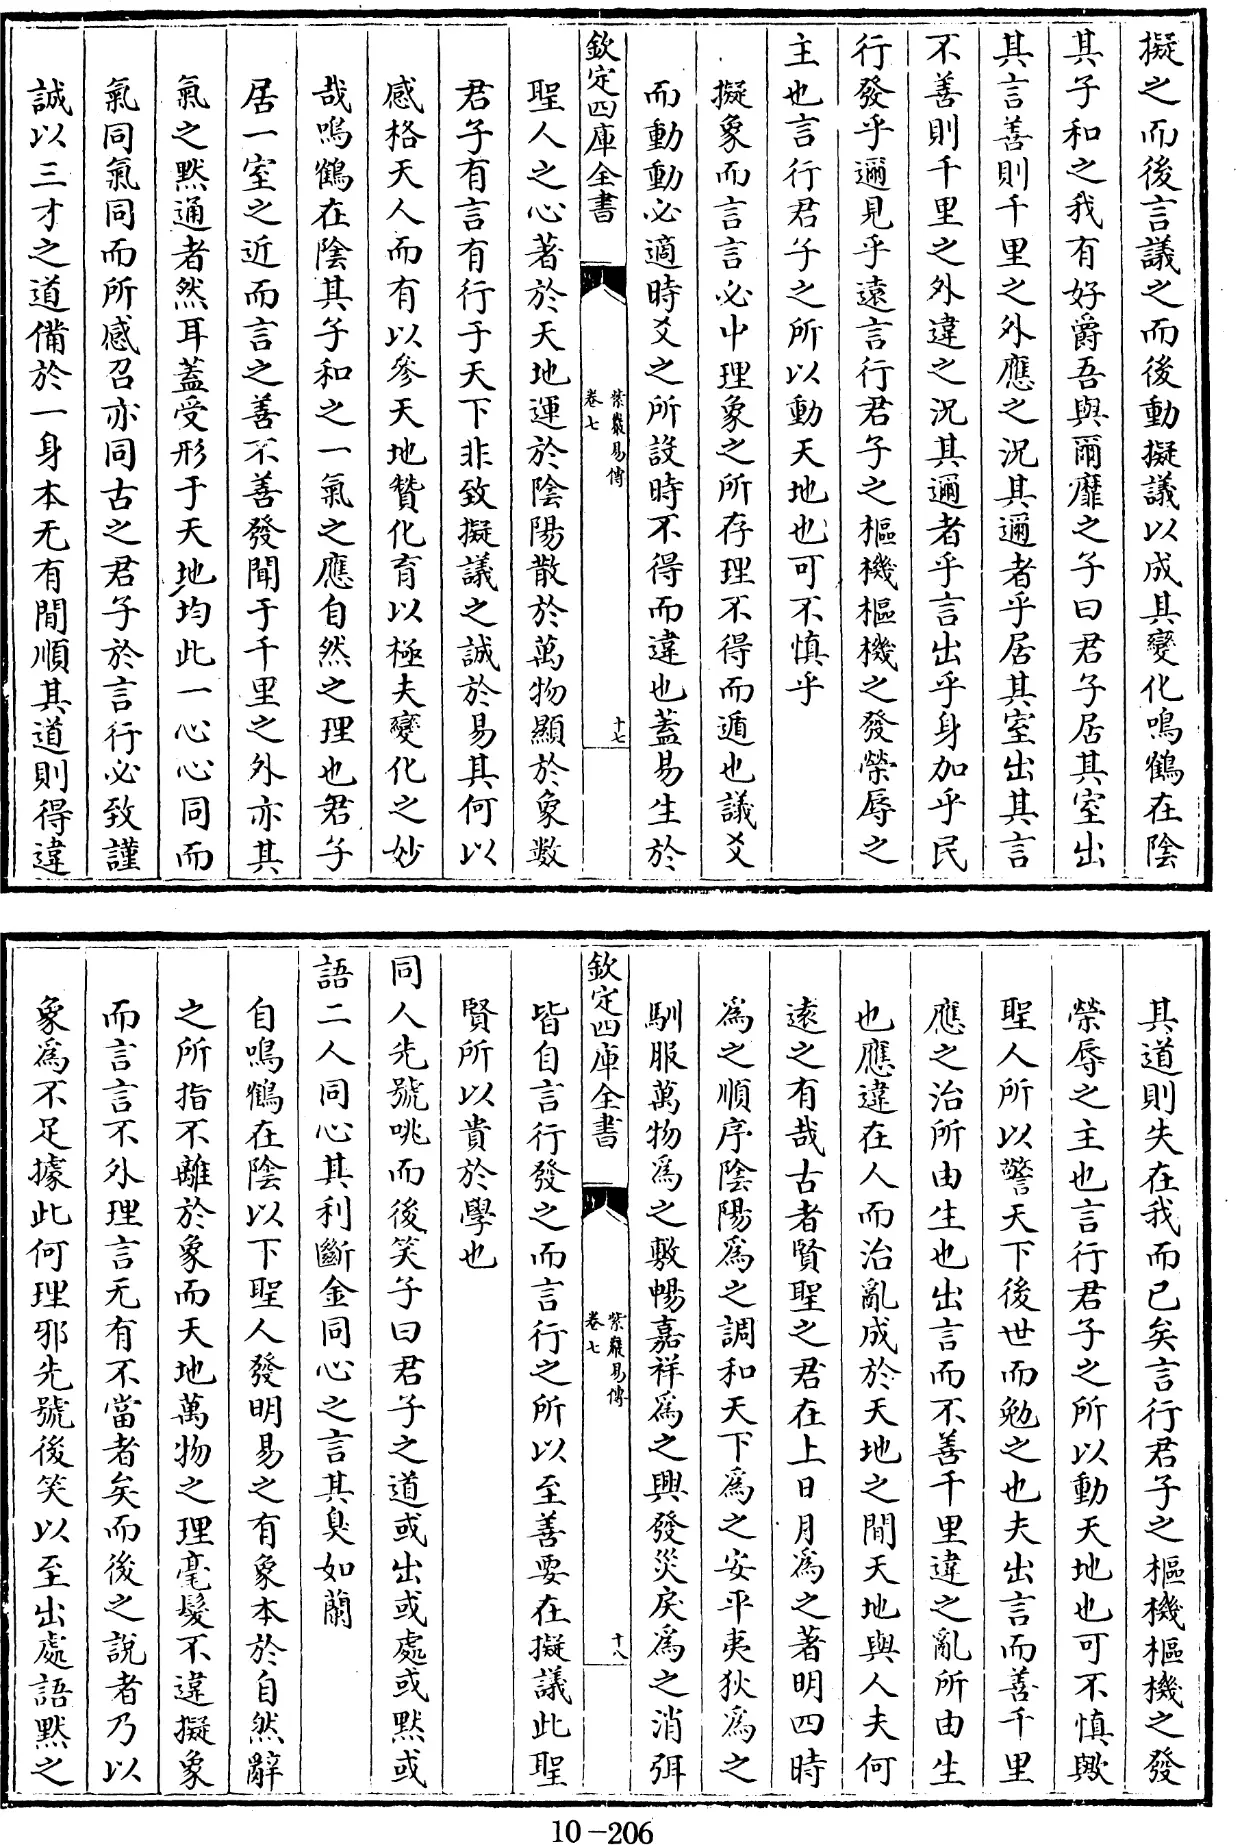 擬之而後言議之而後動擬議以成其變化鳴鶴在陰
其子和之我有好爵吾與爾靡之子曰君子居其室出
其言善則千里之外應之況其邇者乎居其室出其言
不善則千里之外違之況其邇者乎言出乎身加乎民
行發乎邇見乎遠言行君子之樞機樞機之發榮辱之
主也言行君子之所以動天地也可不慎乎
擬象而言言必中理象之所存理不得而遁也議爻
而動動必適時爻之所設時不得而違也蓋易生於
欽定四庫全書
紫巖易傳
卷七
十七
聖人之心著於天地運於陰陽散於萬物顯於象數
君子有言有行于天下非致擬議之誠於易其何以
感格天人而有以參天地贊化育以極夫變化之妙
哉鳴鶴在陰其子和之一氣之應自然之理也君子
居一室之近而言之善不善發聞于千里之外亦其
氣之黙通者然耳蓋受形于天地均此一心心同而
氣同氣同而所感召亦同古之君子於言行必致謹
誠以三才之道備於一身本无有間順其道則得違
其道則失在我而已矣言行君子之樞機樞機之發
榮辱之主也言行君子之所以動天地也可不慎歟
聖人所以警天下後世而勉之也夫出言而善千里
應之治所由生也出言而不善千里違之亂所由生
也應違在人而治亂成於天地之間天地與人夫何
逺之有哉古者賢聖之君在上日月為之著明四時
為之順序陰陽為之調和天下為之安平夷狄為之
馴服萬物為之敷暢嘉祥為之興發災戾為之消弭
欽定四庫全書
紫巖易傳
卷七
十八
皆自言行發之而言行之所以至善要在擬議此聖
賢所以貴於學也
同人先號咷而後笑子曰君子之道或出或處或黙或
語二人同心其利斷金同心之言其臭如蘭
自鳴鶴在陰以下聖人發明易之有象本於自然辭
之所指不離於象而天地萬物之理毫髮不違擬象
而言言不外理言无有不當者矣而後之說者乃以
象為不足據此何理邪先號後笑以至出處語黙之
10-206